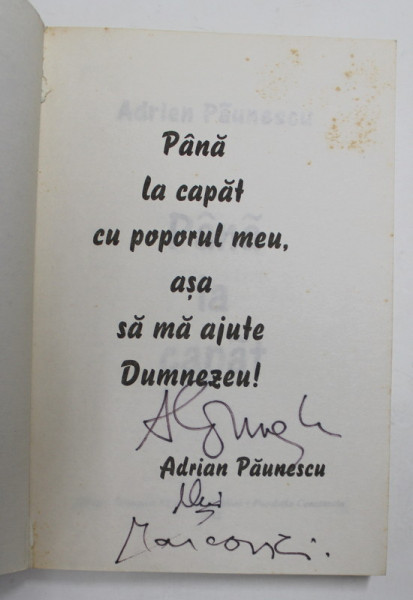 Până
la capăt
cu poporul meu,
așa
să mă ajute
Dumnezeu!
Adrian Păunescu